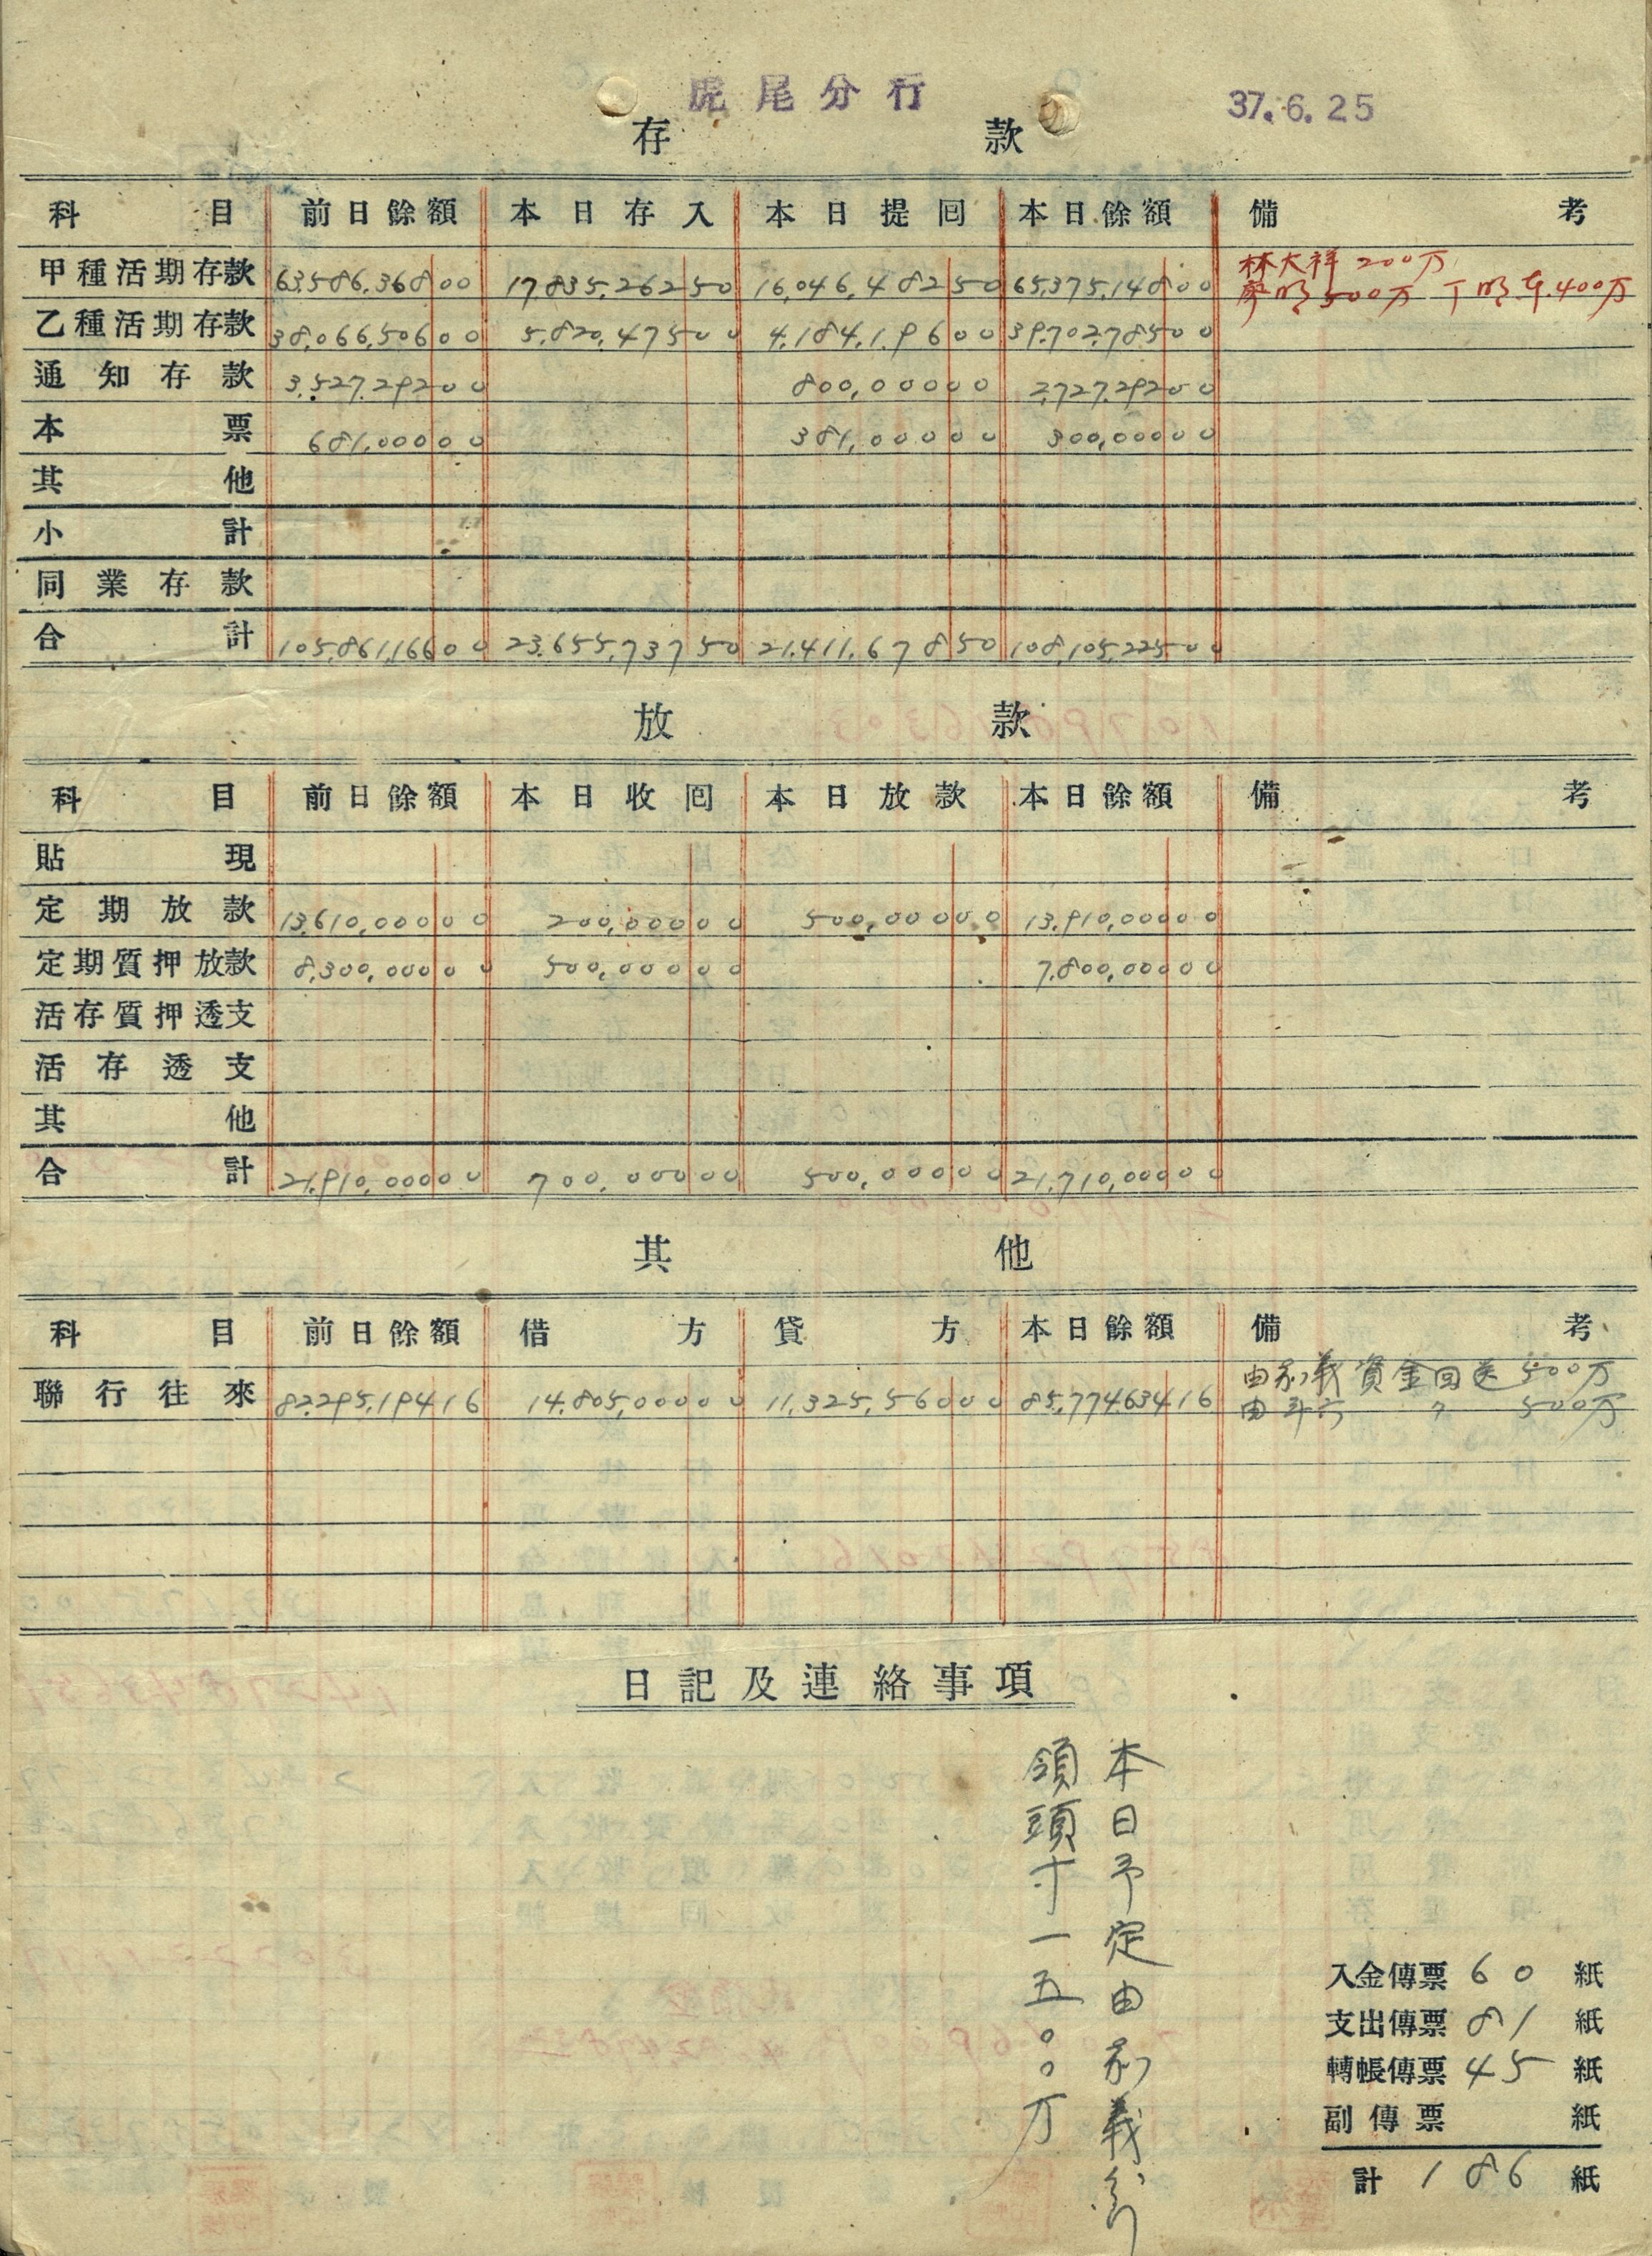 虎尾分行
37.6.25
存款
科目 前日餘額 本日存入 本日提回 本日餘額 備考
甲種活期存款 63,586,368 00 17,835,262 50 16,046,482 50 65,375,148 00 林大祥 200万
500万 400万
乙種活期存款 38,066,506 00 5,820,475 00 4,184,196 00 39,702,785 00
通知存款 3,527,292 00 800,000 00 2,727,292 00
本票 681,000 00 381,000 00 300,000 00
其他
小計
同業存款
合計 105,861,166 00 23,655,737 50 21,411,678 50 108,105,225 00
放款
科目 前日餘額 本日收回 本日放款 本日餘額 備考
貼現
定期放款 13,610,000 00 200,000 00 500,000 00 13,910,000 00
定期質押放款 8,300,000 00 500,000 00 7,800,000 00
活存質押透支
活存透支
其他
合計 21,910,000 00 700,000 00 500,000 00 21,710,000 00
其他
科目 前日餘額 借方 貸方 本日餘額 備考
聯行往來 82,295,194 16 14,805,000 00 11,325,560 00 85,774,634 16 由嘉義資金回送 500万
由斗六 〃 500万
日記及連絡事項
本日予定由嘉義分行
領頭寸一五〇〇万
入金傳票 60 紙
支出傳票 81 紙
轉帳傳票 45 紙
副傳票 紙
計 186 紙